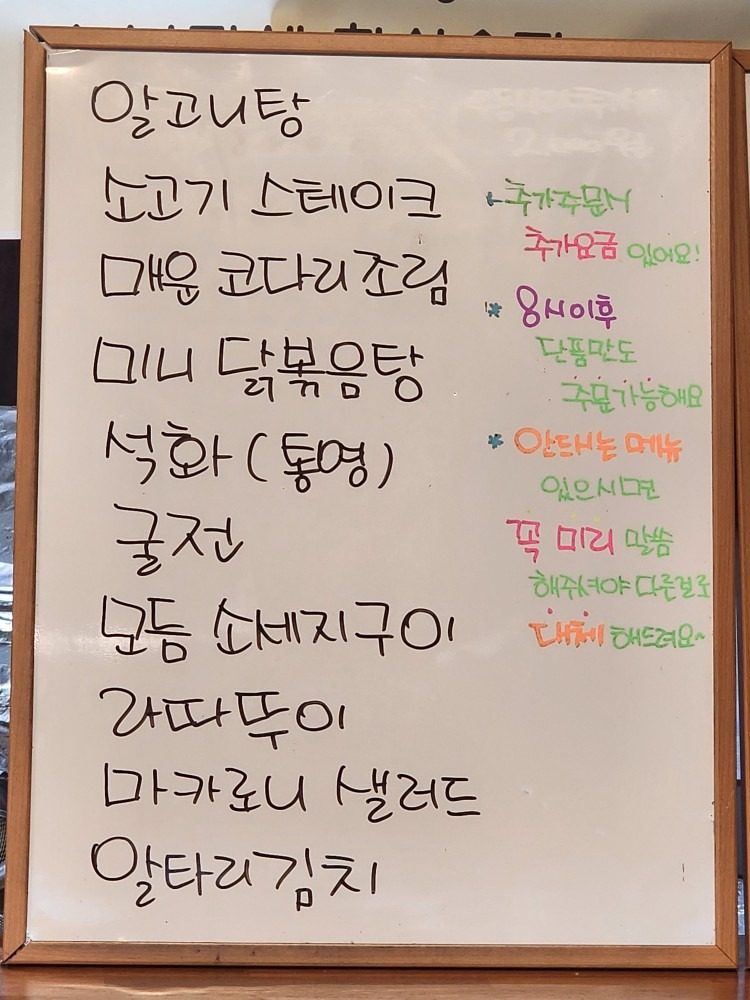 알고니탕
소고기 스테이크
매운 코다리조림
미니 닭볶음탕
석화 (통영)
굴전
모듬 소세지구이
라따뚜이
마카로니 샐러드
알타리김치
* 추가주문시
추가요금 있어요!
* 8시이후
단품만도
주문가능해요
* 안드시는 메뉴
있으시면
꼭 미리 말씀
해주셔야 다른걸로
대체해드려요~